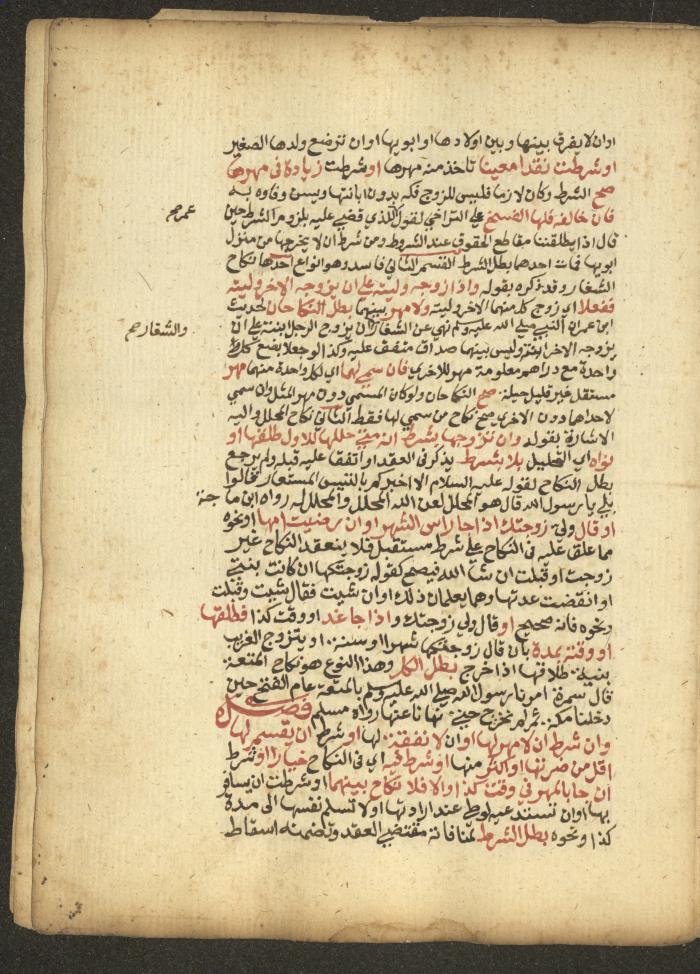 اوان لا يفرق بينها وبين اولادها او ابويها او ان ترضع ولدها الصغير
او شرطت نقدا معينا تاخذ منه مهرها او شرطت زيادة في مهرها
صح الشرط وكان لازما فليس للزوج فكه بدون ابانتها ويسن وفاوه به
فان خالفه فلها الفسخ على التراخي لقول الذي قضي عليه بلزوم الشرط حين
عمر صح
قال اذا يطلقننا مقاطع الحقوق عند الشروط ومن شرط ان لا يخرجها من منزل
ابويها فمات احدهما بطل الشرط القسم الثاني فاسد وهو انواع احدها نكاح
الشغار وقد ذكره بقوله واذا زوجه وليته على ان يزوجه الاخر وليته
ففعلا اي زوج كل منهما الاخر وليته ولا مهر بينهما بطل النكاحان لحديث
ابن عمر ان النبي صلى الله عليه وسلم نهى عن الشغار ان يزوج الرجل ابنته على ان
والشغار صح
يزوجه الاخر ابنته وليس بينهما صداق متفق عليه وكذا لو جعلا بضع كل
واحدة مع دراهم معلومة مهر للاخرى فان سمي لهما اي لكل واحدة منهما مهر
مستقل غير قليل حيلة صح النكاحان ولو كان المسمى دون مهر المثل وان سمي
لاحداهما دون الاخرى صح نكاح من سمي لها فقط الثاني نكاح المحلل واليه
الاشارة بقوله وان تزوجها بشرط انه متى حللها للاول طلقها او
نواه اي التحليل بلا شرط يذكر في العقد او اتفقا عليه قبله ولم يرجع
بطل النكاح لقوله عليه السلام الا اخبركم بالتيس المستعار قالوا
بلى يا رسول الله قال هو المحلل لعن الله المحلل والمحلل له رواه ابن ماجة
او قال ولي زوجتك اذا جا راس الشهر او ان رضيت امها او نحوه
مما علق عليه في النكاح على شرط مستقبل فلا ينعقد النكاح غير
زوجت او قبلت ان شا الله فيصح كقوله زوجتكها ان كانت بنتي
او انقضت عدتها وهما يعلمان ذلك او ان شيت فقال شيت وقبلت
ونحوه فانه صحيح او قال ولي زوجتك واذا جا غد او وقت كذا فطلقها
او وقته بمدة بان قال زوجتكها شهرا او سنة او يتزوج الغريب
بنية طلاقها اذا خرج بطل الكل وهذا النوع هو نكاح المتعة
قال سمرة امرنا رسول الله صلى الله عليه وسلم بالمتعة عام الفتح حين
دخلنا مكة ثم لم نخرج حتى نهانا عنها رواه مسلم فصل
وان شرط ان لا مهر لها او ان لا نفقة لها او شرط ان يقسم لها
اقل من ضرتها او اكثر منها او شرط فيه اي في النكاح خيارا او شرط
ان جا بالمهر في وقت كذا والا فلا نكاح بينهما او شرطت ان يسافر
بها او ان تستدعيه لوطي عند ارادتها او لا تسلم نفسها الى مدة
كذا ونحوه بطل الشرط لمنافاته مقتضى العقد وتضمنه اسقاط